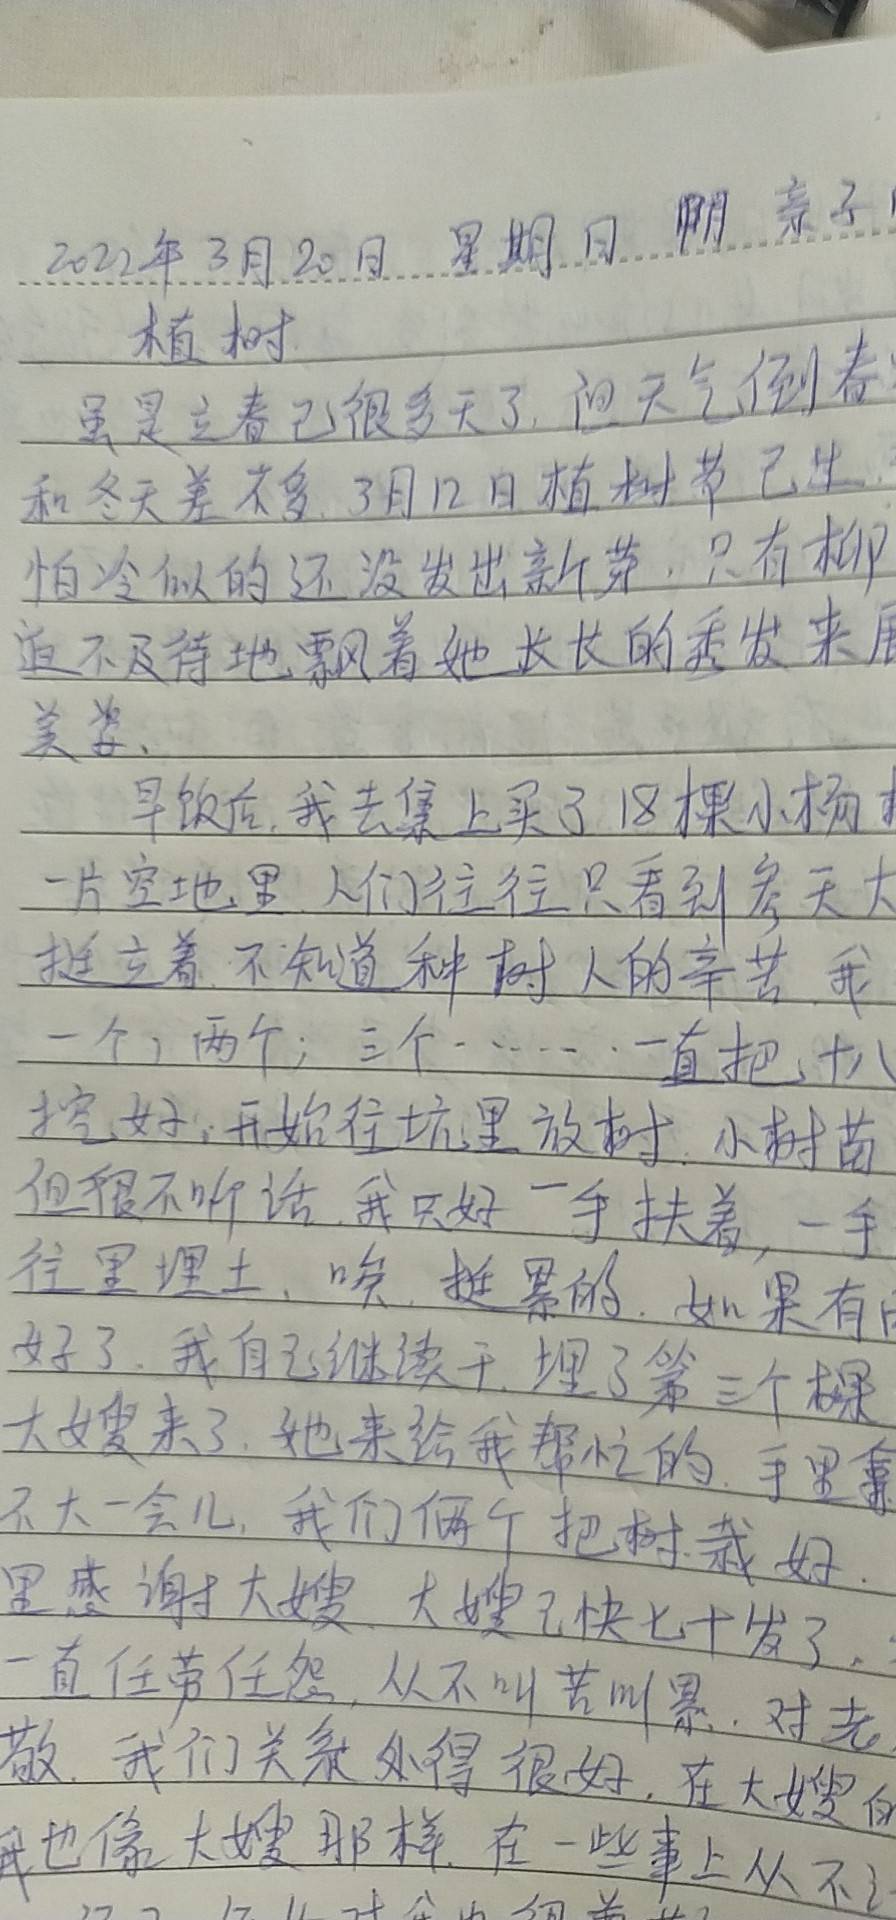 2022年3月20日 星期日 阴 亲子
植树
虽是立春已很多天了,但天气倒春
和冬天差不多.3月12日植树节已
怕冷似的还没发出新芽.只有柳
迫不及待地飘着她长长的秀发来展
美姿、
早饭后,我去集上买了18棵小杨
一片空地里.人们往往只看到参天大
挺立着.不知道种树人的辛苦.我
一个,两个;三个······一直把十八
挖好,开始往坑里放树.小树苗
但很不听话.我只好一手扶着,一手
往里埋土、唉,挺累的.如果有
好了.我自己继续干.埋了第三个棵
大嫂来了.她来给我帮忙的.手里拿
不大一会儿,我们俩个把树栽好.
里感谢大嫂.大嫂已快七十岁了.
一直任劳任怨,从不叫苦叫累.对老
敬.我们关系处得很好.在大嫂的
我也像大嫂那样.在一些事上从不